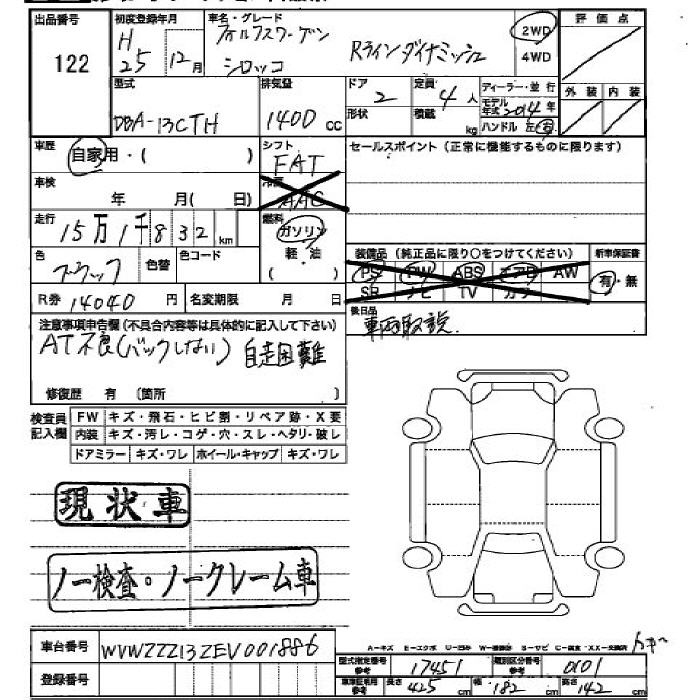 出品番号 122
初度登録年月 H25 12月
車名・グレード フォルクスワーゲン シロッコ Rラインダイナミッシュ
2WD
4WD
評価点
外装 内装
型式 DBA-13CTH
排気量 1400 cc
ドア 2
形状
定員 4人
積載 kg
ディーラー・並行
モデル年式 2014年
ハンドル 左 右
車歴 自家用・( )
シフト FAT
冷房 AAC
セールスポイント(正常に機能するものに限ります)
車検 年 月( 日)
走行 15万1千832 km
燃料 ガソリン
軽・油
( )
色 ブラック
色替
色コード
R券 14040円
名変期限 月 日
装備品(純正品に限り○をつけてください)
PS PW ABS エアB AW
SR ナビ TV カワ
新車保証書
有・無
後日品 車両取説.
注意事項申告欄(不具合内容等は具体的に記入して下さい)
AT不良(バックしない) 自走困難
修復歴 有 〔箇所 〕
検査員記入欄
FW キズ・飛石・ヒビ割・リペア跡・X要
内装 キズ・汚レ・コゲ・穴・スレ・ヘタリ・破レ
ドアミラー キズ・ワレ ホイール・キャップ キズ・ワレ
現状車
ノー検査・ノークレーム車
車台番号 WVWZZZ13ZEV001886
登録番号
型式指定番号 参考 17451
類別区分番号 参考 0101
車庫証明用 参考 長さ 425 cm 幅 182 cm 高さ 142 cm